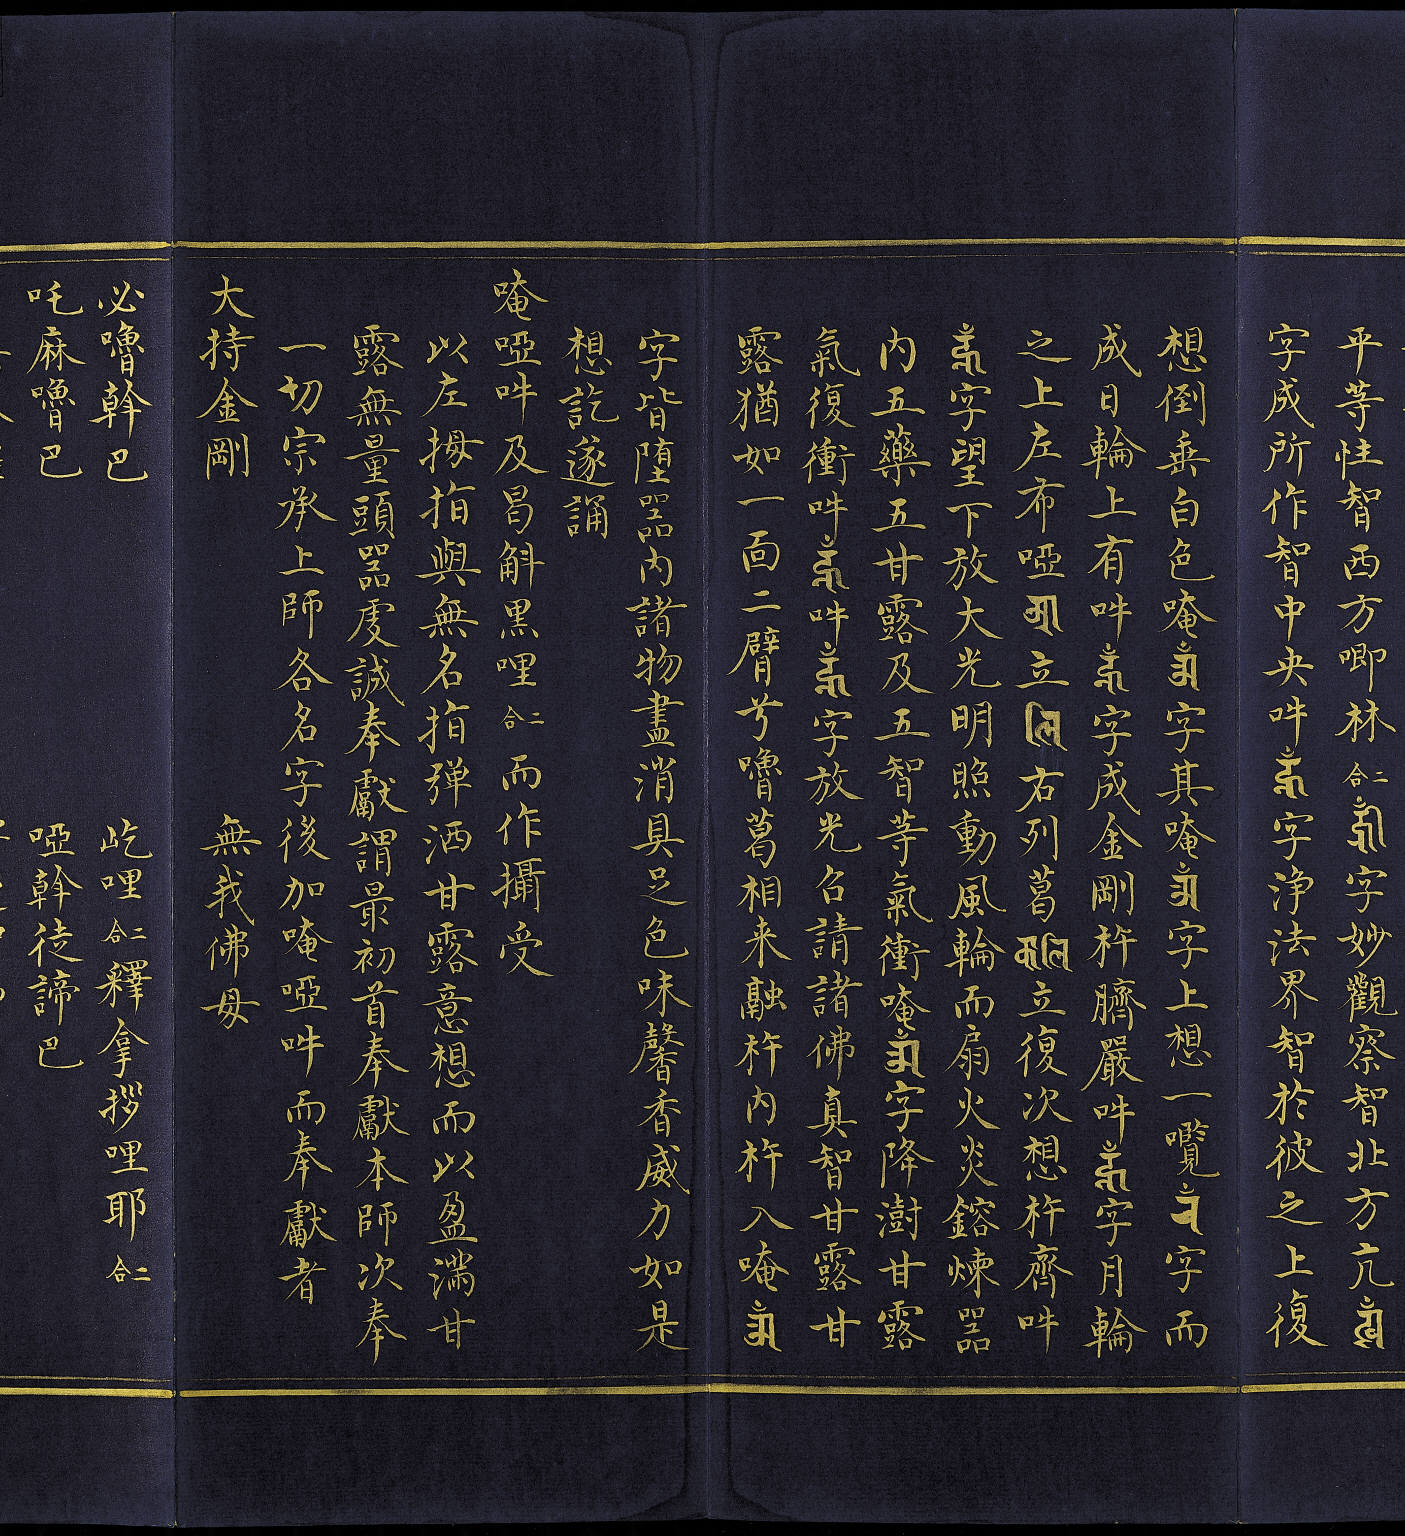 平等性智西方唧林二合ཧྲཱིཿ字妙觀察智北方亢ཁཾ
字成所作智中央吽ཧཱུྃ字淨法界智於彼之上復
想倒垂白色唵ༀ字其唵ༀ字上想一㘕字而
成日輪上有吽ཧཱུྃ字成金剛杵臍嚴吽ཧཱུྃ字月輪
之上左布啞ཨཱ立ལི右列葛ཀཱལི立復次想杵齊吽
ཧཱུྃ字望下放大光明照動風輪而扇火炎鎔煉器
內五藥五甘露及五智等氣衝唵ༀ字降澍甘露
氣復衝吽ཧཱུྃ吽ཧཱུྃ字放光召請諸佛真智甘露甘
露猶如一面二臂兮嚕葛相来融杵內杵入唵ༀ
字皆堕器內諸物盡消具足色味馨香威力如是
想訖遂誦
唵啞吽及曷斛黑哩二合而作攝受
以左拇指與無名指彈洒甘露意想而以盈滿甘
露無量頭器虔誠奉獻謂最初首奉獻本師次奉
一切宗承上師各名字後加唵啞吽而奉獻者
大持金剛　無我佛母
必嚕斡巴　屹哩二合釋拿拶哩耶二合
吒麻嚕巴　啞斡徒諦巴